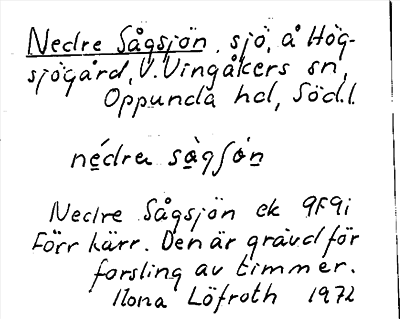 Nedre Sågsjön, sjö, å Hög-
sjögård, V. Vingåkers sn,
Oppunda hd, Söd.l.
nédra sàgʃȯn
Nedre Sågsjön ek 9F9i
Förr kärr. Den är grävd för
forsling av timmer.
Ilona Löfroth 1972